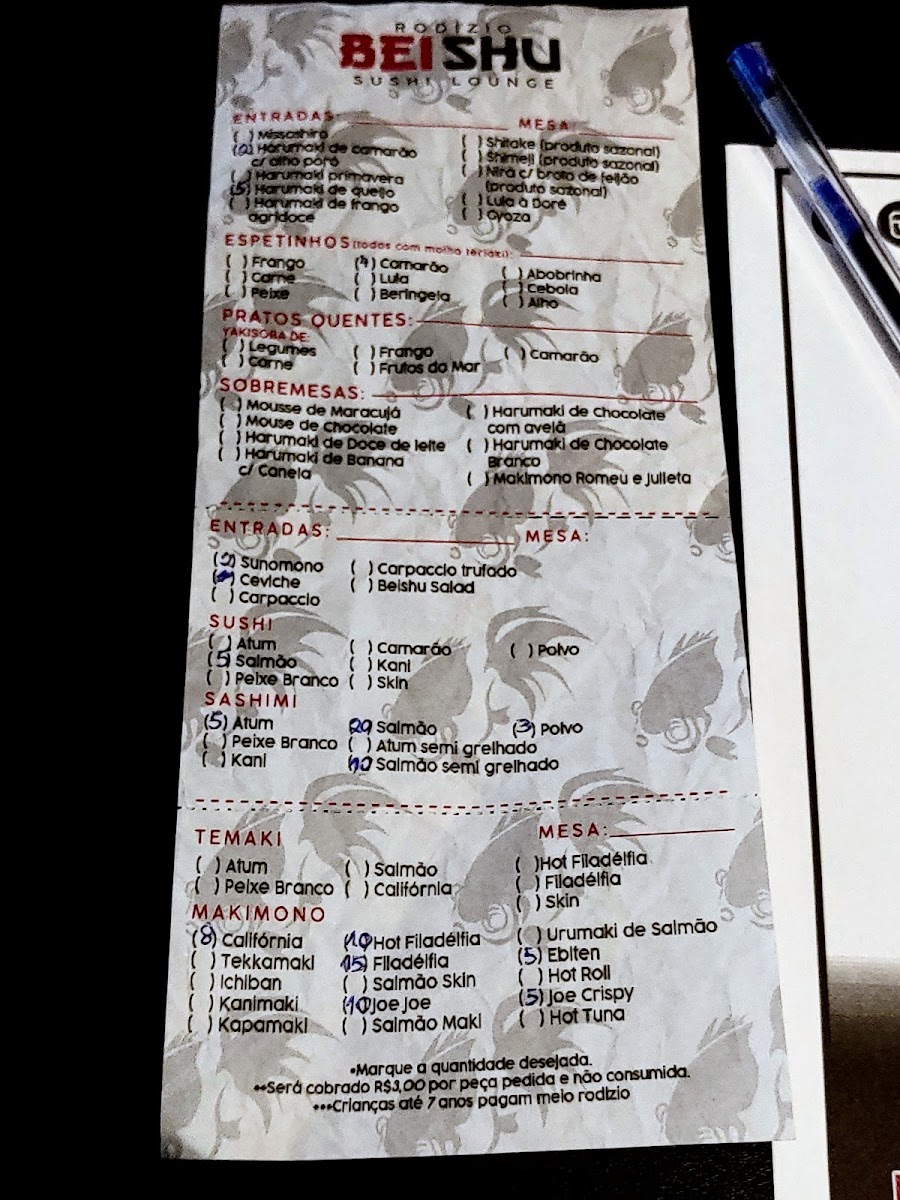 RODÍZIO
BEISHU
SUSHI LOUNGE
ENTRADAS: MESA
( ) Missoshiro
(2) Harumaki de camarão
c/ alho poró
( ) Harumaki primavera
(5) Harumaki de queijo
( ) Harumaki de frango
agridoce
( ) Shitake (produto sazonal)
( ) Shimeji (produto sazonal)
( ) Nirá c/ broto de feijão
(produto sazonal)
( ) Lula à Doré
( ) Gyoza
ESPETINHOS (todos com molho teriaki):
( ) Frango (4) Camarão ( ) Abobrinha
( ) Carne ( ) Lula ( ) Cebola
( ) Peixe ( ) Beringela ( ) Alho
PRATOS QUENTES:
YAKISOBA DE:
( ) Legumes ( ) Frango ( ) Camarão
( ) Carne ( ) Frutos do Mar
SOBREMESAS:
( ) Mousse de Maracujá
( ) Mouse de Chocolate
( ) Harumaki de Doce de leite
( ) Harumaki de Banana
c/ Canela
( ) Harumaki de Chocolate
com avelã
( ) Harumaki de Chocolate
Branco
( ) Makimono Romeu e Julieta
ENTRADAS: MESA:
( ) Sunomono ( ) Carpaccio trufado
( ) Ceviche ( ) Beishu Salad
( ) Carpaccio
SUSHI
( ) Atum ( ) Camarão ( ) Polvo
(5) Salmão ( ) Kani
( ) Peixe Branco ( ) Skin
SASHIMI
(5) Atum (20) Salmão (3) Polvo
( ) Peixe Branco ( ) Atum semi grelhado
( ) Kani (10) Salmão semi grelhado
TEMAKI MESA:
( ) Atum ( ) Salmão ( ) Hot Filadélfia
( ) Peixe Branco ( ) Califórnia ( ) Filadélfia
( ) Skin
MAKIMONO
(8) Califórnia (10) Hot Filadélfia ( ) Urumaki de Salmão
( ) Tekkamaki (15) Filadélfia (5) Ebiten
( ) Ichiban ( ) Salmão Skin ( ) Hot Roll
( ) Kanimaki (10) Joe Joe (5) Joe Crispy
( ) Kapamaki ( ) Salmão Maki ( ) Hot Tuna
•Marque a quantidade desejada.
••Será cobrado R$3,00 por peça pedida e não consumida.
•••Crianças até 7 anos pagam meio rodízio